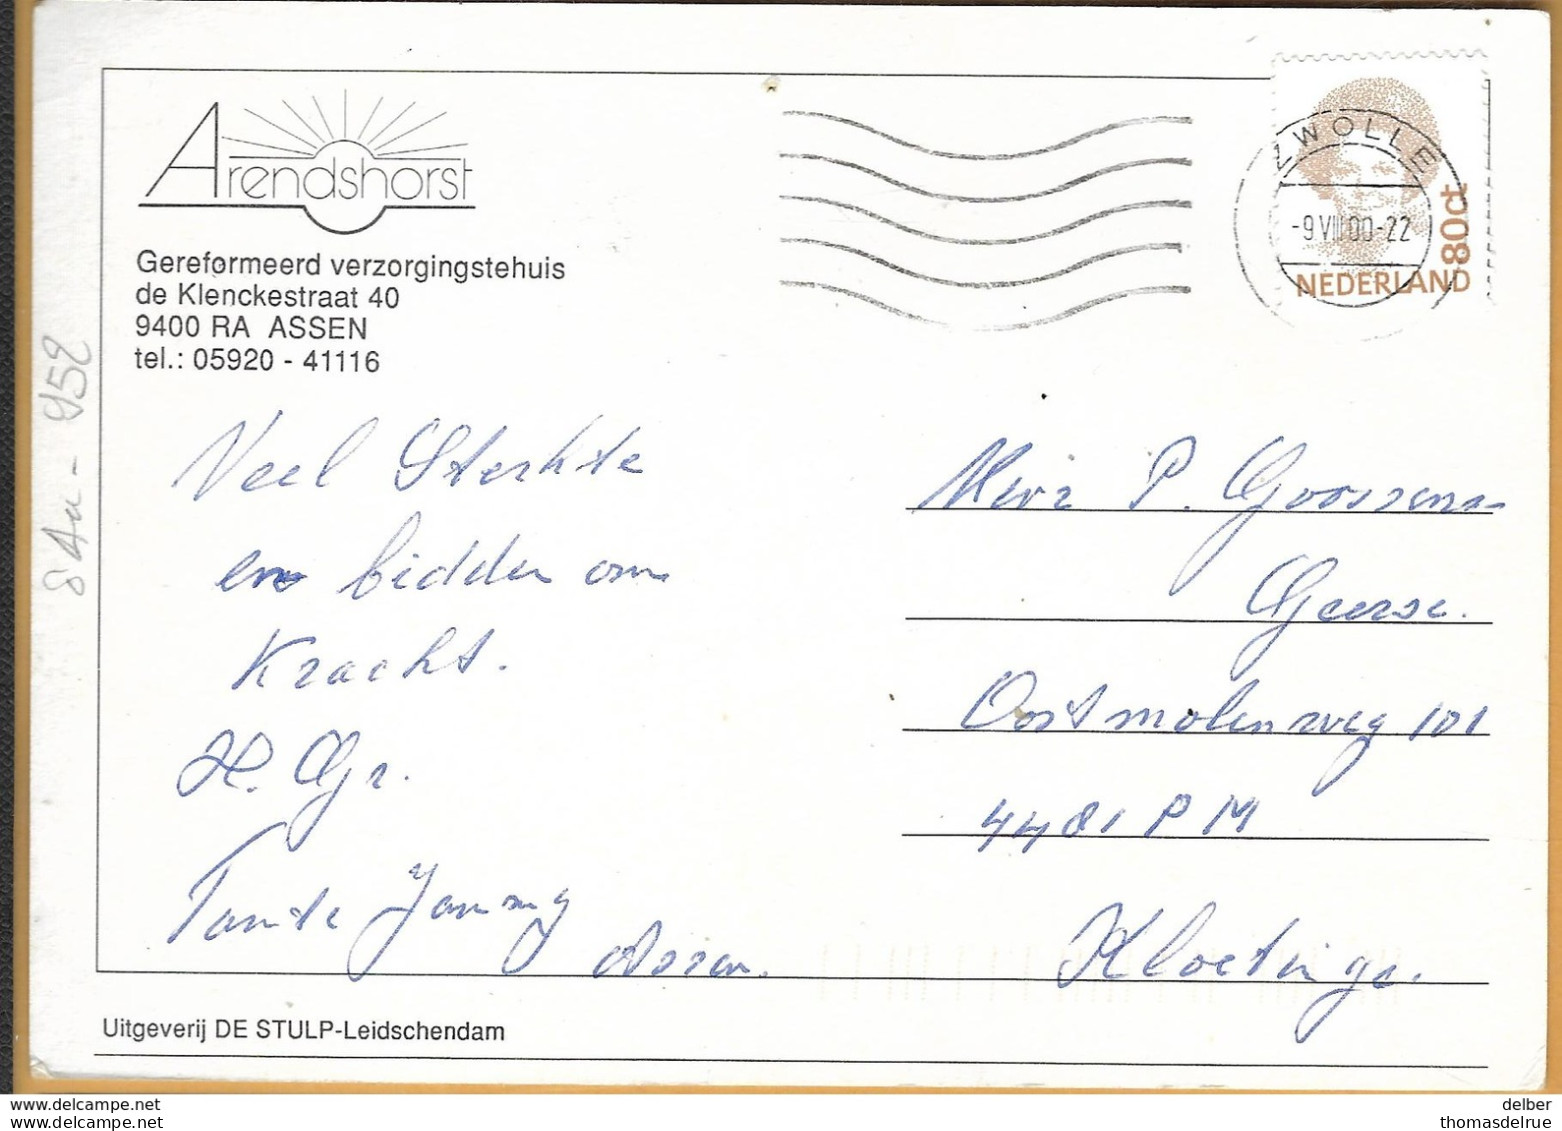 Arendshorst
Gereformeerd verzorgingstehuis
de Klenckestraat 40
9400 RA ASSEN
tel.: 05920 - 41116
ZWOLLE
-9 VIII 00-22
80ct
NEDERLAND
Veel Sterkte
en bidden om
Kracht.
H. Gr.
Tante Jammy
Assen.
P. Goossens-
Geerse.
Oostmolenweg 101
4481 PM
Kloetinge.
Uitgeverij DE STULP-Leidschendam
delcampe.net
delcampe.net
delber
thomasdelrue